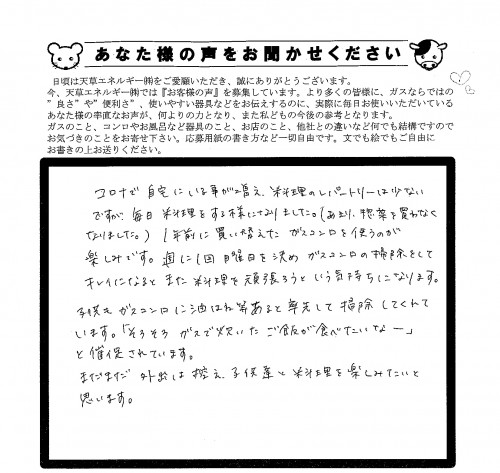 あなた様の声をお聞かせください
日頃は天草エネルギー㈱をご愛顧いただき、誠にありがとうございます。
今、天草エネルギー㈱では『お客様の声』を募集しています。より多くの皆様に、ガスならではの
”良さ”や”便利さ”、使いやすい器具などをお伝えするのに、実際に毎日お使いいただいている
あなた様の率直なお声が、何よりの力となり、また私どもの今後の参考となります。
ガスのこと、コンロやお風呂など器具のこと、お店のこと、他社との違いなど何でも結構ですので
お気づきのことをお寄せ下さい。応募用紙の書き方など一切自由です。文でも絵でもご自由に
お書きの上お送りください。
コロナで自宅にいる事が増え、料理のレパートリーは少ない
ですが、毎日料理をする様になりました。(あまり、惣菜を買わなく
なりました。)1年前に買い替えたガスコンロを使うのが
楽しみです。週に1回曜日を決めガスコンロの掃除をして
キレイになるとまた料理を頑張ろうという気持ちになります。
子供もガスコンロに油はね等あると率先して掃除してくれて
います。「そろそろガスで炊いたご飯が食べたいなー」
と催促されています。
まだまだ外出は控え、子供達と料理を楽しみたいと
思います。